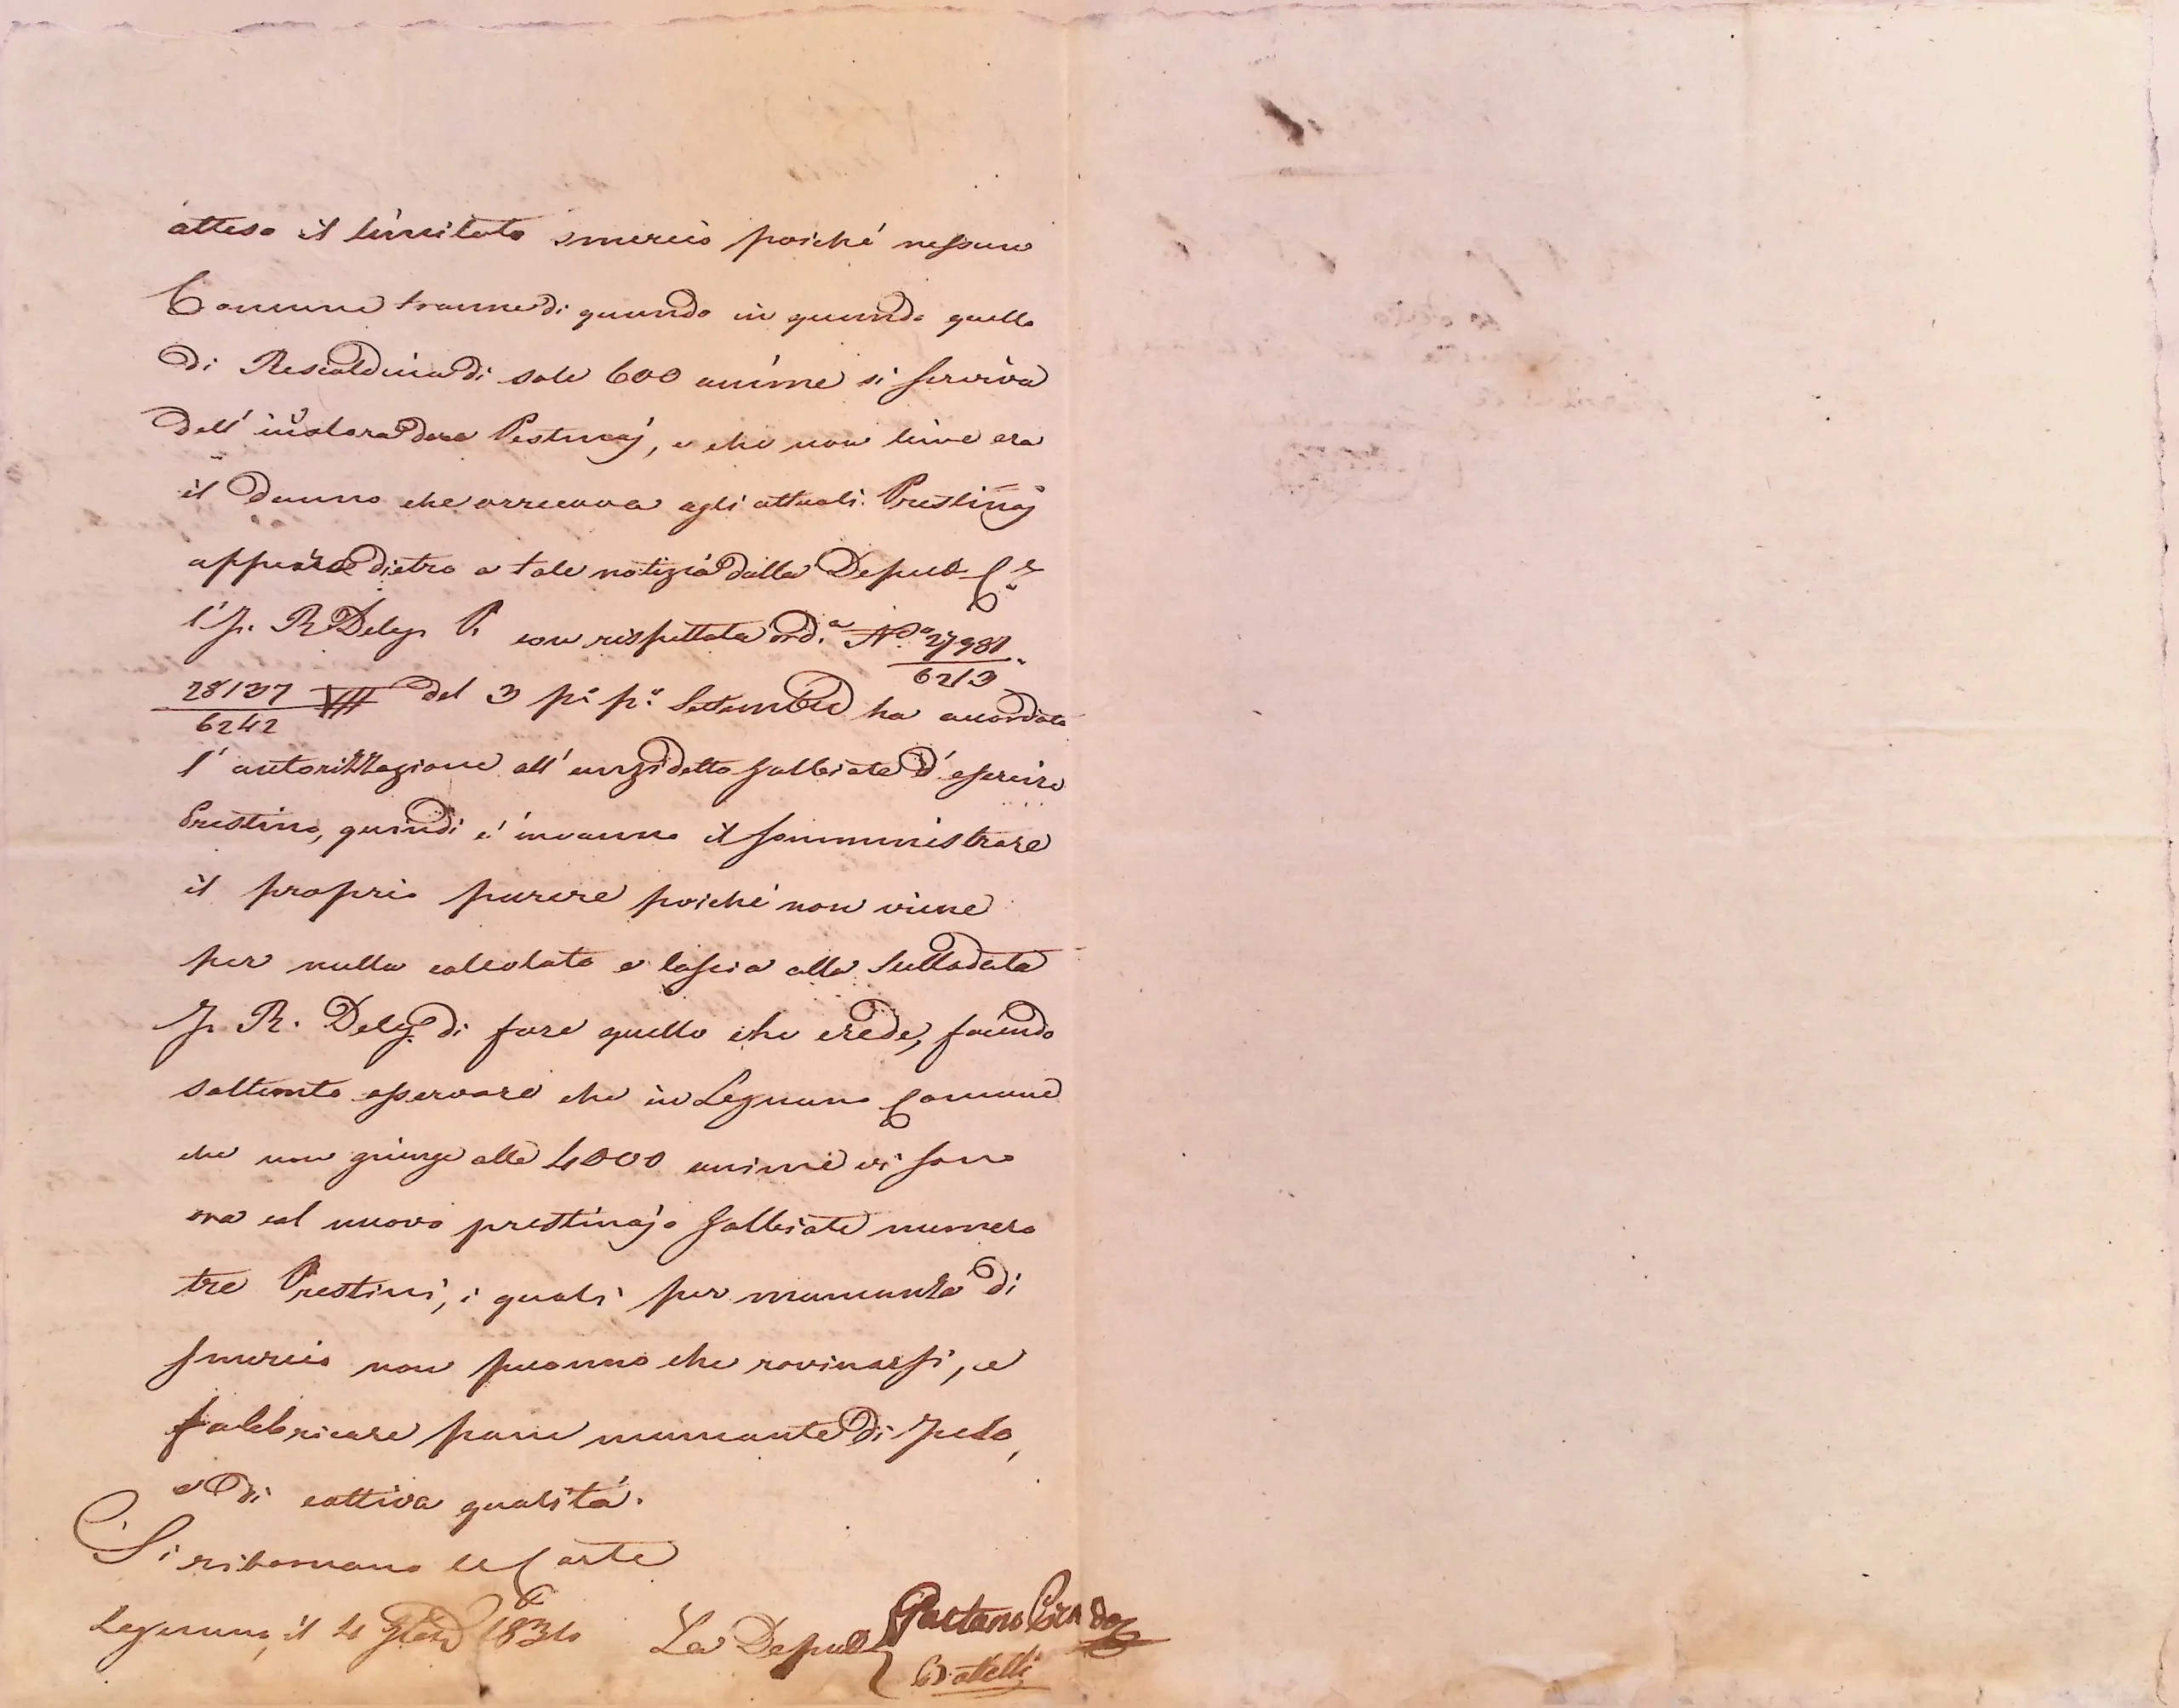 atteso il limitato smercio poiché nessuno
Comune tranne di quando in quando quello
di Rescaldina di sole 600 anime si serviva
dell' Pestinaj, e che non lieve era
il danno che arrecava agli attuali Prestinaj
appena dietro a tale notizia dalla Deput. C.e
l'I. R. Deleg. P. con rispettata ord.a N.o 27981
6213
28137 VII del 3 p.o p.o Settembre ha accordato
6242
l'autorizzazione all'anzidetto Galbiate d'esercire
Prestino, quindi é invanno il somministrare
il proprio parere poiché non viene
per nulla calcolato e lascia alla sullodata
I. R. Deleg.e di fare quello che crede, facendo
soltanto osservare che in Legnano Comune
che non giunge alle 4000 anime vi sono
ora col nuovo prestinajo Galbiate numero
tre Prestini, i quali per mancanza di
smercio non puonno che rovinarsi, e
fabbricare pane mancante di peso,
e di cattiva qualitá.
Si ritornano le Carte
Legnano, il 4 1834
La Deput. Gaetano